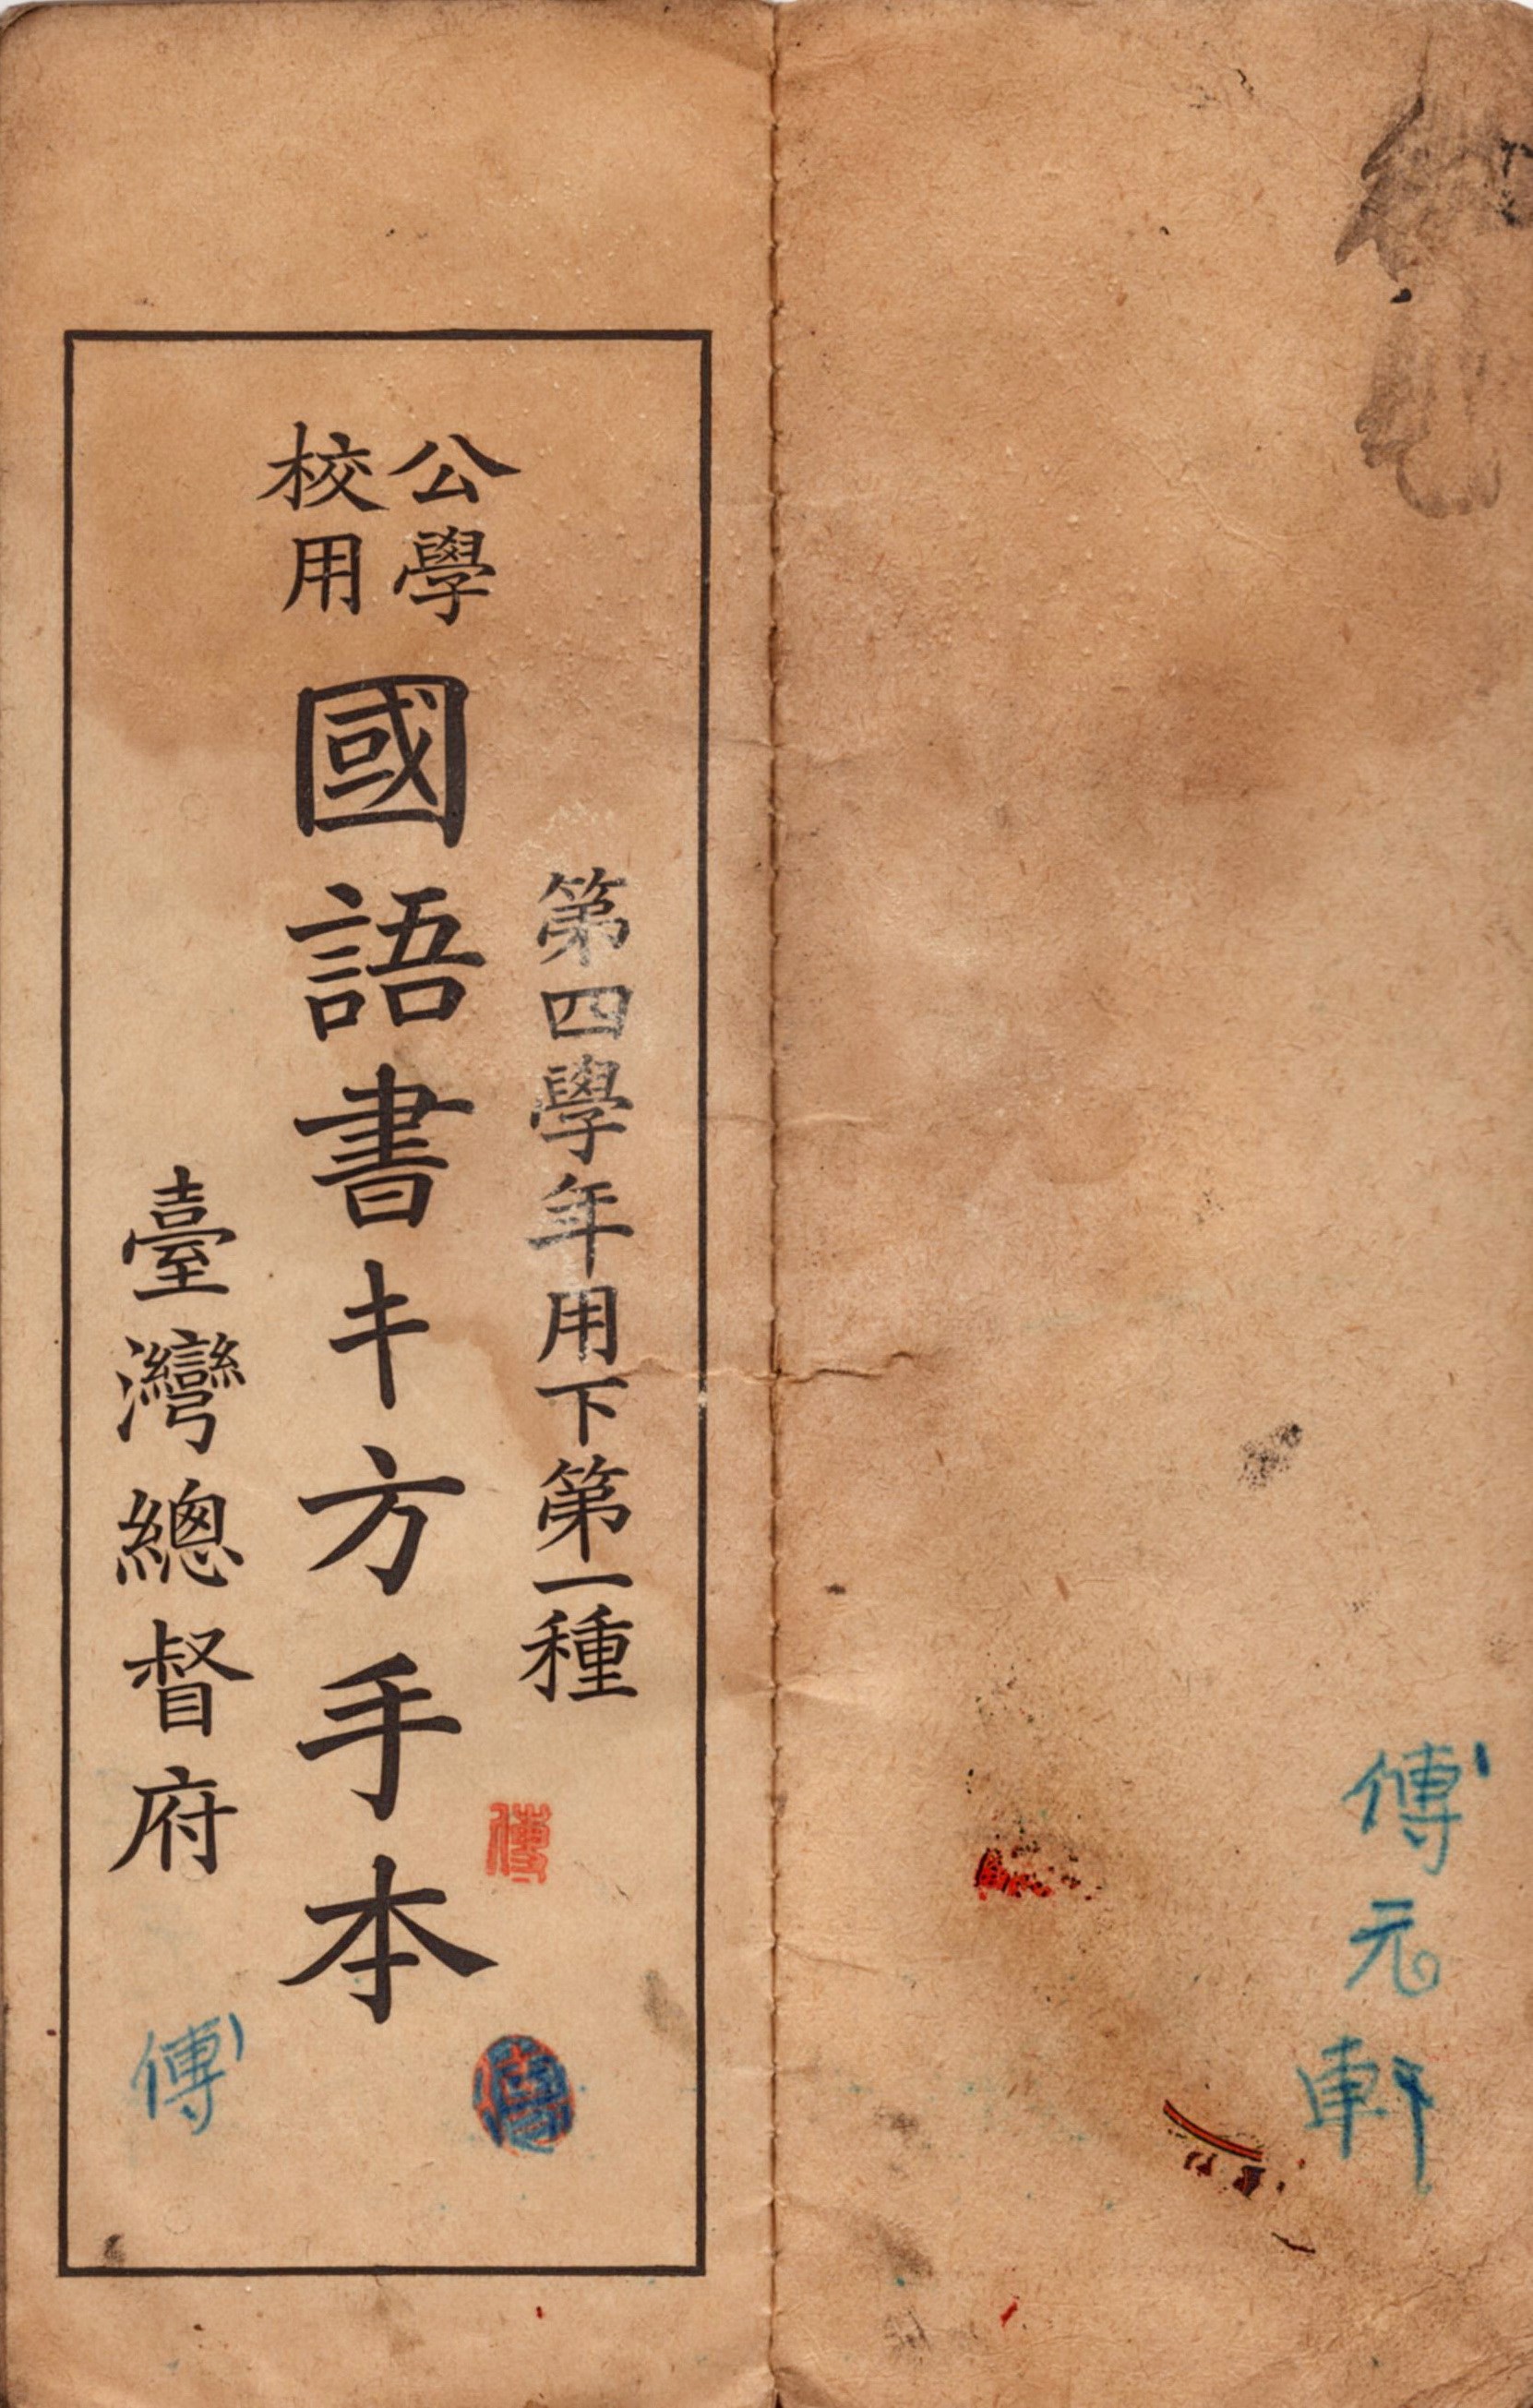 傅元軒
第四學年用下第一種
公學校用
國語書キ方手本
臺灣總督府
傅
傅
傅